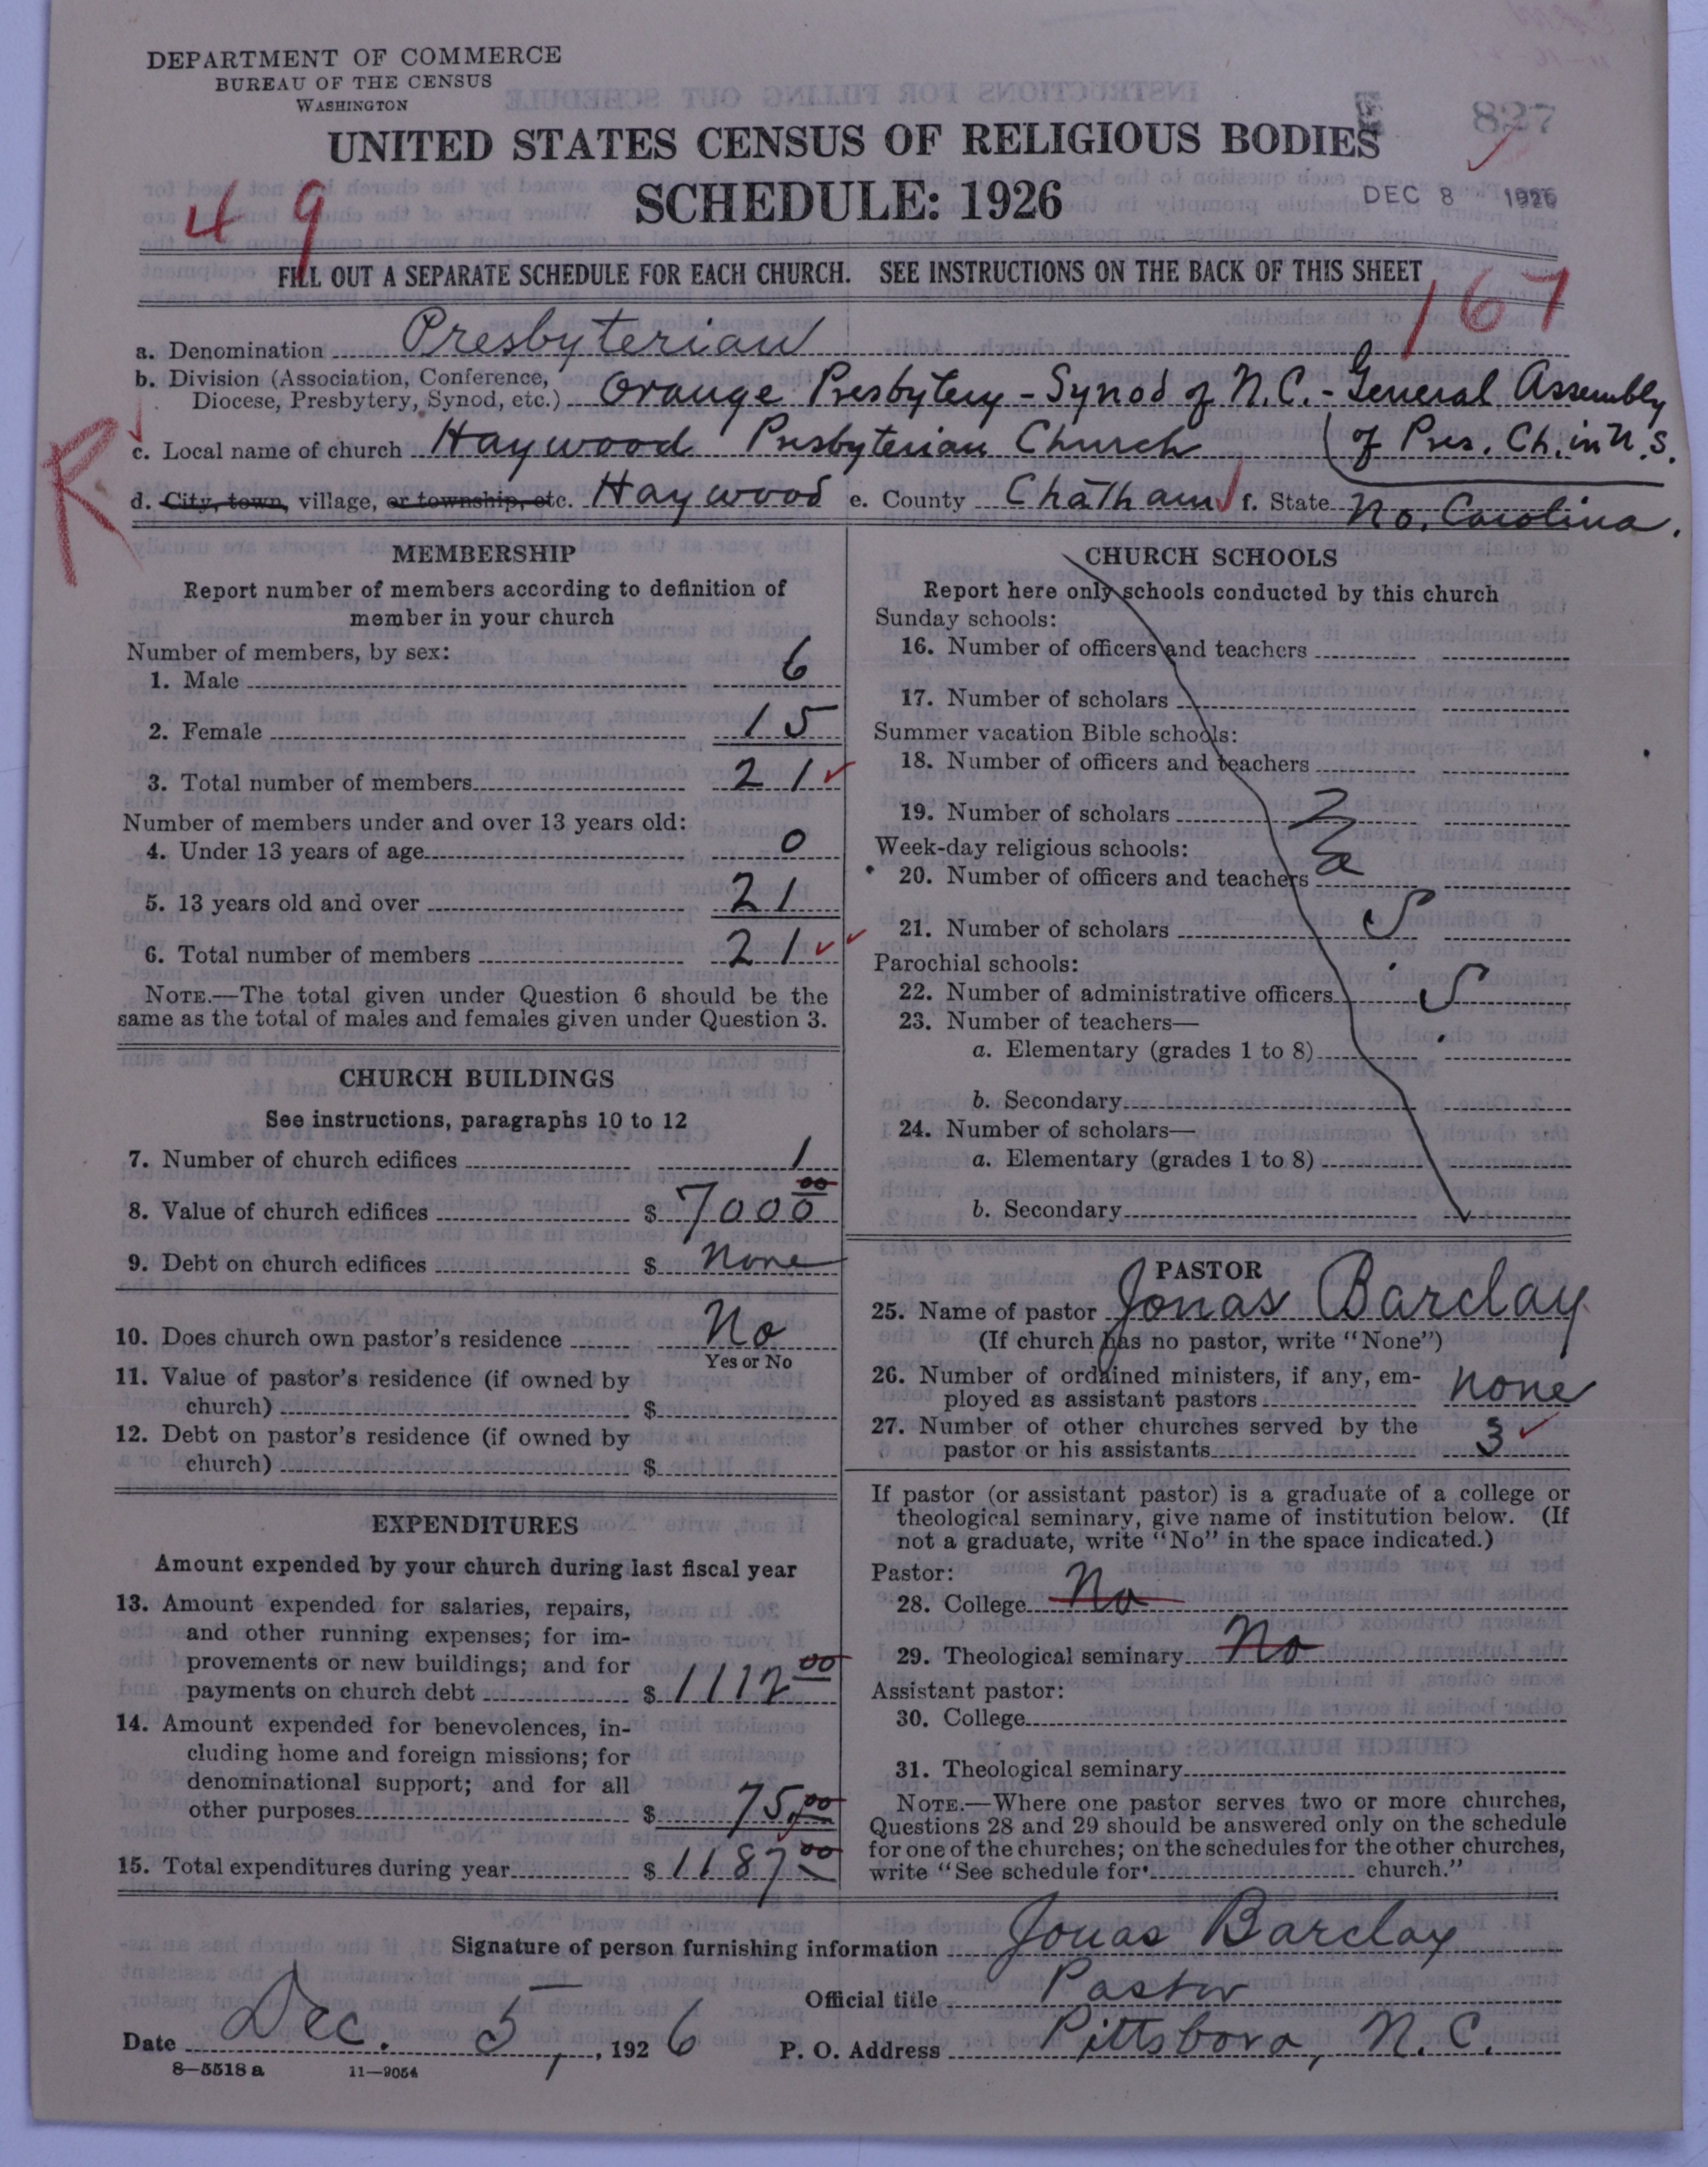 DEPARTMENT OF COMMERCE
BUREAU OF THE CENSUS
WASHINGTON
827
UNITED STATES CENSUS OF RELIGIOUS BODIES
SCHEDULE: 1926
DEC 8 1926
49
FILL OUT A SEPARATE SCHEDULE FOR EACH CHURCH. SEE INSTRUCTIONS ON THE BACK OF THIS SHEET
167
a. Denomination Presbyterian
b. Division (Association, Conference, Diocese, Presbytery, Synod, etc.) Orange Presbytery - Synod of N.C. - General Assembly
of Pres. Ch. in U.S.
R
c. Local name of church Haywood Presbyterian Church
d. City, town, village, or township, etc. Haywood e. County Chatham f. State No. Carolina.
MEMBERSHIP
Report number of members according to definition of
member in your church
Number of members, by sex:
1. Male 6
2. Female 15
3. Total number of members 21
Number of members under and over 13 years old:
4. Under 13 years of age 0
5. 13 years old and over 21
6. Total number of members 21
NOTE.—The total given under Question 6 should be the
same as the total of males and females given under Question 3.
CHURCH BUILDINGS
See instructions, paragraphs 10 to 12
7. Number of church edifices 1
8. Value of church edifices $ 7000 00
9. Debt on church edifices $ none
10. Does church own pastor's residence No
Yes or No
11. Value of pastor's residence (if owned by
church) $
12. Debt on pastor's residence (if owned by
church) $
EXPENDITURES
Amount expended by your church during last fiscal year
13. Amount expended for salaries, repairs,
and other running expenses; for im-
provements or new buildings; and for
payments on church debt $ 1112 00
14. Amount expended for benevolences, in-
cluding home and foreign missions; for
denominational support; and for all
other purposes $ 75.00
15. Total expenditures during year $ 1187 00
CHURCH SCHOOLS
Report here only schools conducted by this church
Sunday schools:
16. Number of officers and teachers
17. Number of scholars
Summer vacation Bible schools:
18. Number of officers and teachers
19. Number of scholars
Week-day religious schools:
20. Number of officers and teachers
21. Number of scholars
Parochial schools:
22. Number of administrative officers
23. Number of teachers—
a. Elementary (grades 1 to 8)
b. Secondary
24. Number of scholars—
a. Elementary (grades 1 to 8)
b. Secondary
PASTOR
25. Name of pastor Jonas Barclay
(If church has no pastor, write "None")
26. Number of ordained ministers, if any, em-
ployed as assistant pastors none
27. Number of other churches served by the
pastor or his assistants 3
If pastor (or assistant pastor) is a graduate of a college or
theological seminary, give name of institution below. (If
not a graduate, write "No" in the space indicated.)
Pastor:
28. College No
29. Theological seminary No
Assistant pastor:
30. College
31. Theological seminary
NOTE.—Where one pastor serves two or more churches,
Questions 28 and 29 should be answered only on the schedule
for one of the churches; on the schedules for the other churches,
write "See schedule for church."
Signature of person furnishing information Jonas Barclay
Official title Pastor
Date Dec. 5, 1926 P. O. Address Pittsboro, N.C.
8—5518 a 11—9054